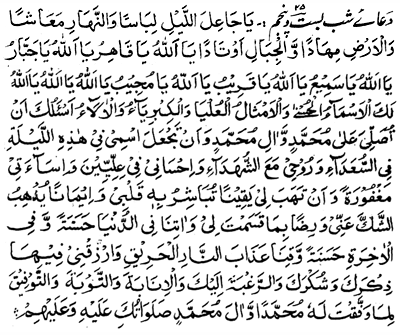 دعائے شب بست و پنجم ۲۵ :- يَا جَاعِلَ اللَّيْلِ لِبَاسًا وَّالنَّهَارِ مَعَاشًا
وَّالْاَرْضِ مِهَادًا وَّالْجِبَالِ اَوْتَادًا يَا اَللّٰهُ يَا قَاهِرُ يَا اَللّٰهُ يَا جَبَّارُ
يَا اَللّٰهُ يَا سَمِيْعُ يَا اَللّٰهُ يَا قَرِيْبُ يَا اَللّٰهُ يَا مُجِيْبُ يَا اَللّٰهُ يَا اَللّٰهُ يَا اَللّٰهُ
لَكَ الْاَسْمَآءُ الْحُسْنٰى وَالْاَمْثَالُ الْعُلْيَا وَالْكِبْرِيَآءُ وَالْاٰلَآءُ اَسْئَلُكَ اَنْ
تُصَلِّيَ عَلٰى مُحَمَّدٍ وَّاٰلِ مُحَمَّدٍ وَاَنْ تَجْعَلَ اسْمِيْ فِيْ هٰذِهِ اللَّيْلَةِ
فِي السُّعَدَآءِ وَرُوْحِيْ مَعَ الشُّهَدَآءِ وَاِحْسَانِيْ فِيْ عِلِّيِّيْنَ وَاِسَآءَتِيْ
مَغْفُوْرَةً وَاَنْ تَهَبَ لِيْ يَقِيْنًا تُبَاشِرُ بِهٖ قَلْبِيْ وَاِيْمَانًا يُّذْهِبُ
الشَّكَّ عَنِّيْ وَرِضًا بِمَا قَسَمْتَ لِيْ وَاٰتِنَا فِي الدُّنْيَا حَسَنَةً وَّفِي
الْاٰخِرَةِ حَسَنَةً وَّقِنَا عَذَابَ النَّارِ الْحَرِيْقِ وَارْزُقْنِيْ فِيْهَا
ذِكْرَكَ وَشُكْرَكَ وَالرَّغْبَةَ اِلَيْكَ وَالْاِنَابَةَ وَالتَّوْبَةَ وَالتَّوْفِيْقَ
لِمَا وَفَّقْتَ لَهٗ مُحَمَّدًا وَّاٰلَ مُحَمَّدٍ صَلَوَاتُكَ عَلَيْهِ وَعَلَيْهِمْ